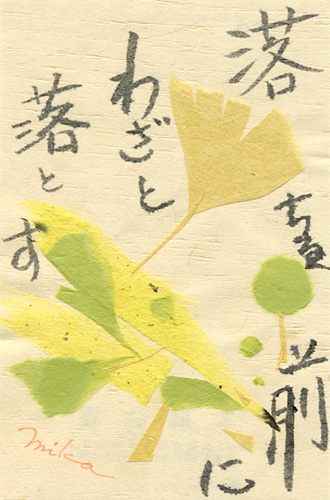 落ちる前に
わざと
落とす
mika